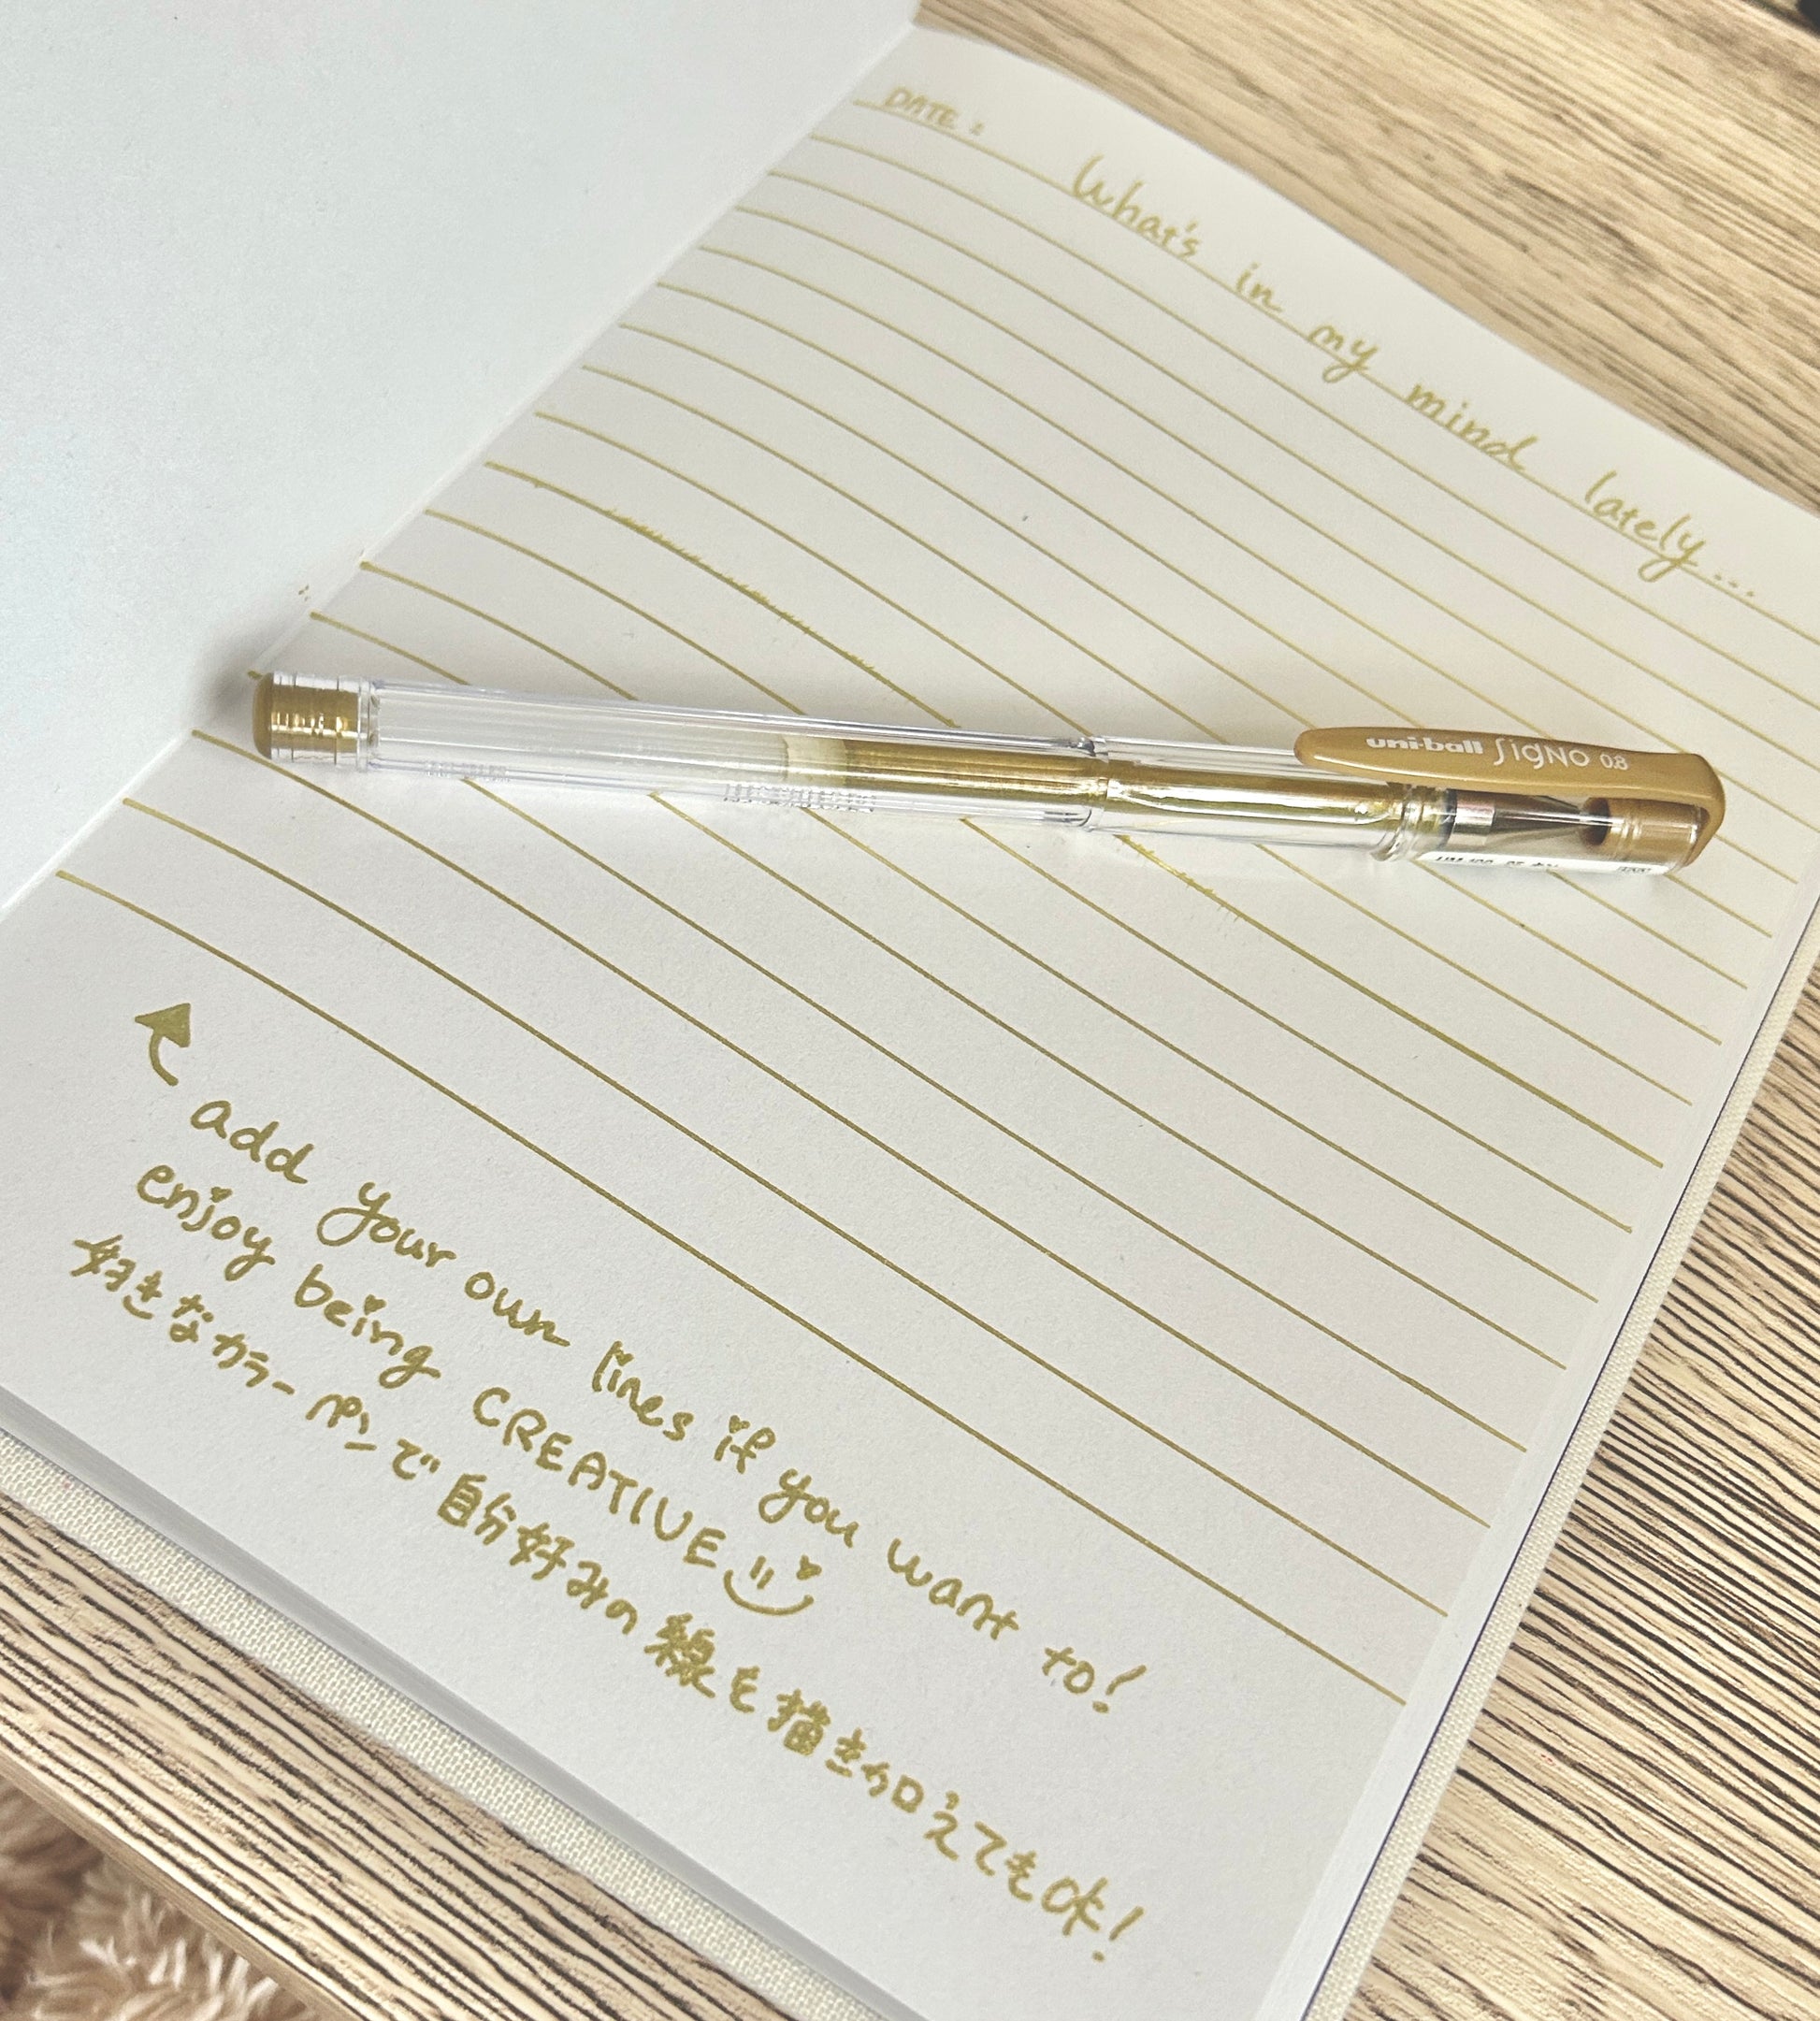 DATE :
What's in my mind lately...
uni-ball SigNo 0.8
add your own lines if you want to!
enjoy being CREATIVE
好きなカラーペンで自分好みの線を描き加えても味!